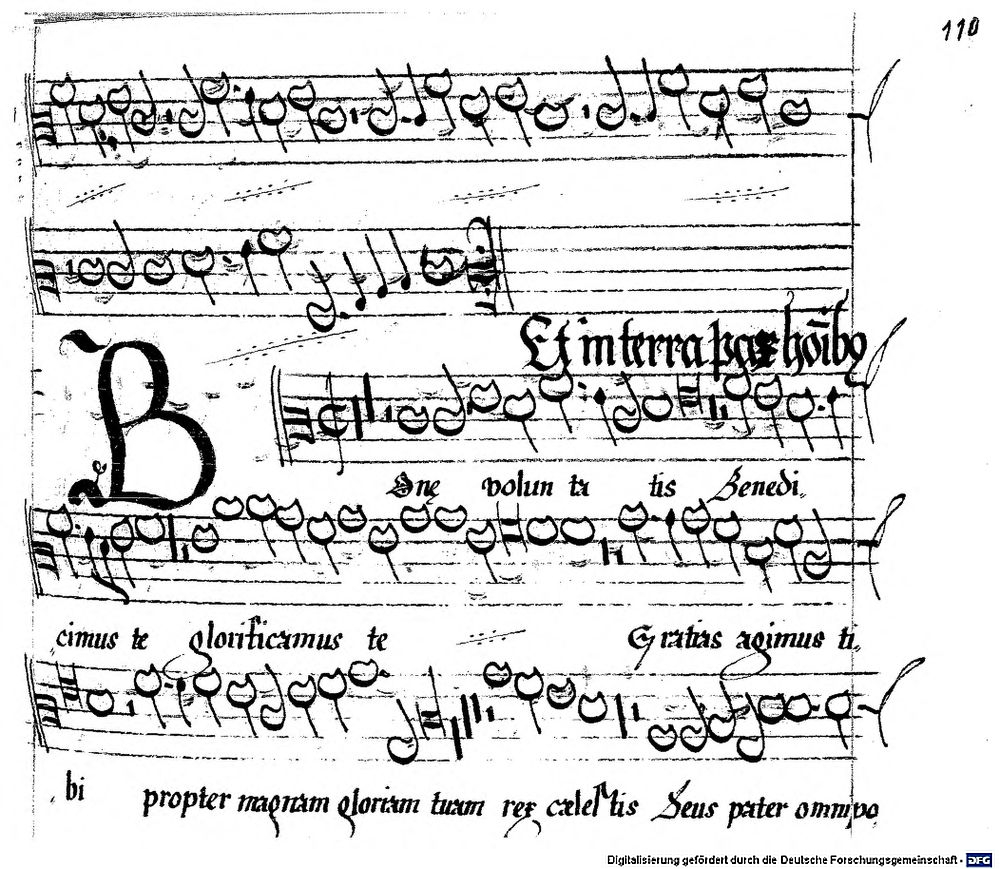 110
Et in terra pax hōibꝰ
B
One volun ta tis Benedi,
cimus te glorificamus te Gratias agimus ti,
bi propter magnam gloriam tuam rex cælestis Deus pater omnipo
Digitalisierung gefördert durch die Deutsche Forschungsgemeinschaft - DFG